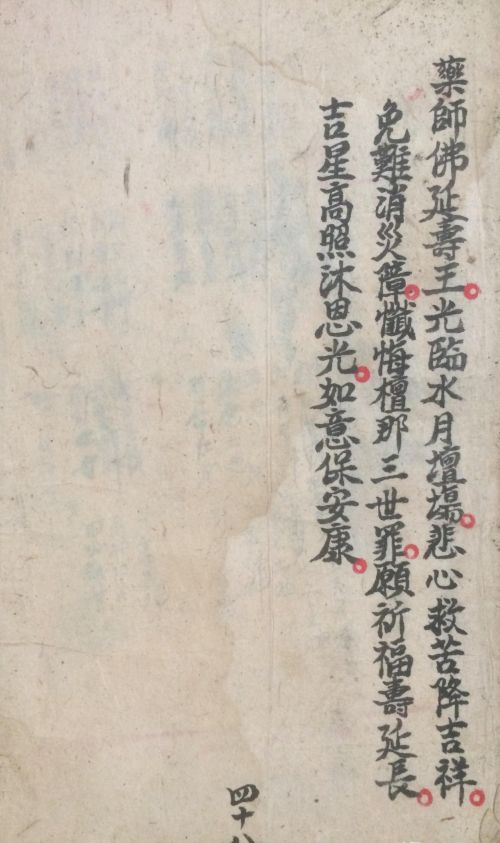 藥師佛延壽王。光臨水月壇場。悲心救苦降吉祥。
免難消災障。懺悔檀那三世罪。願祈福壽延長。
吉星高照沐恩光。如意保安康。
四十八